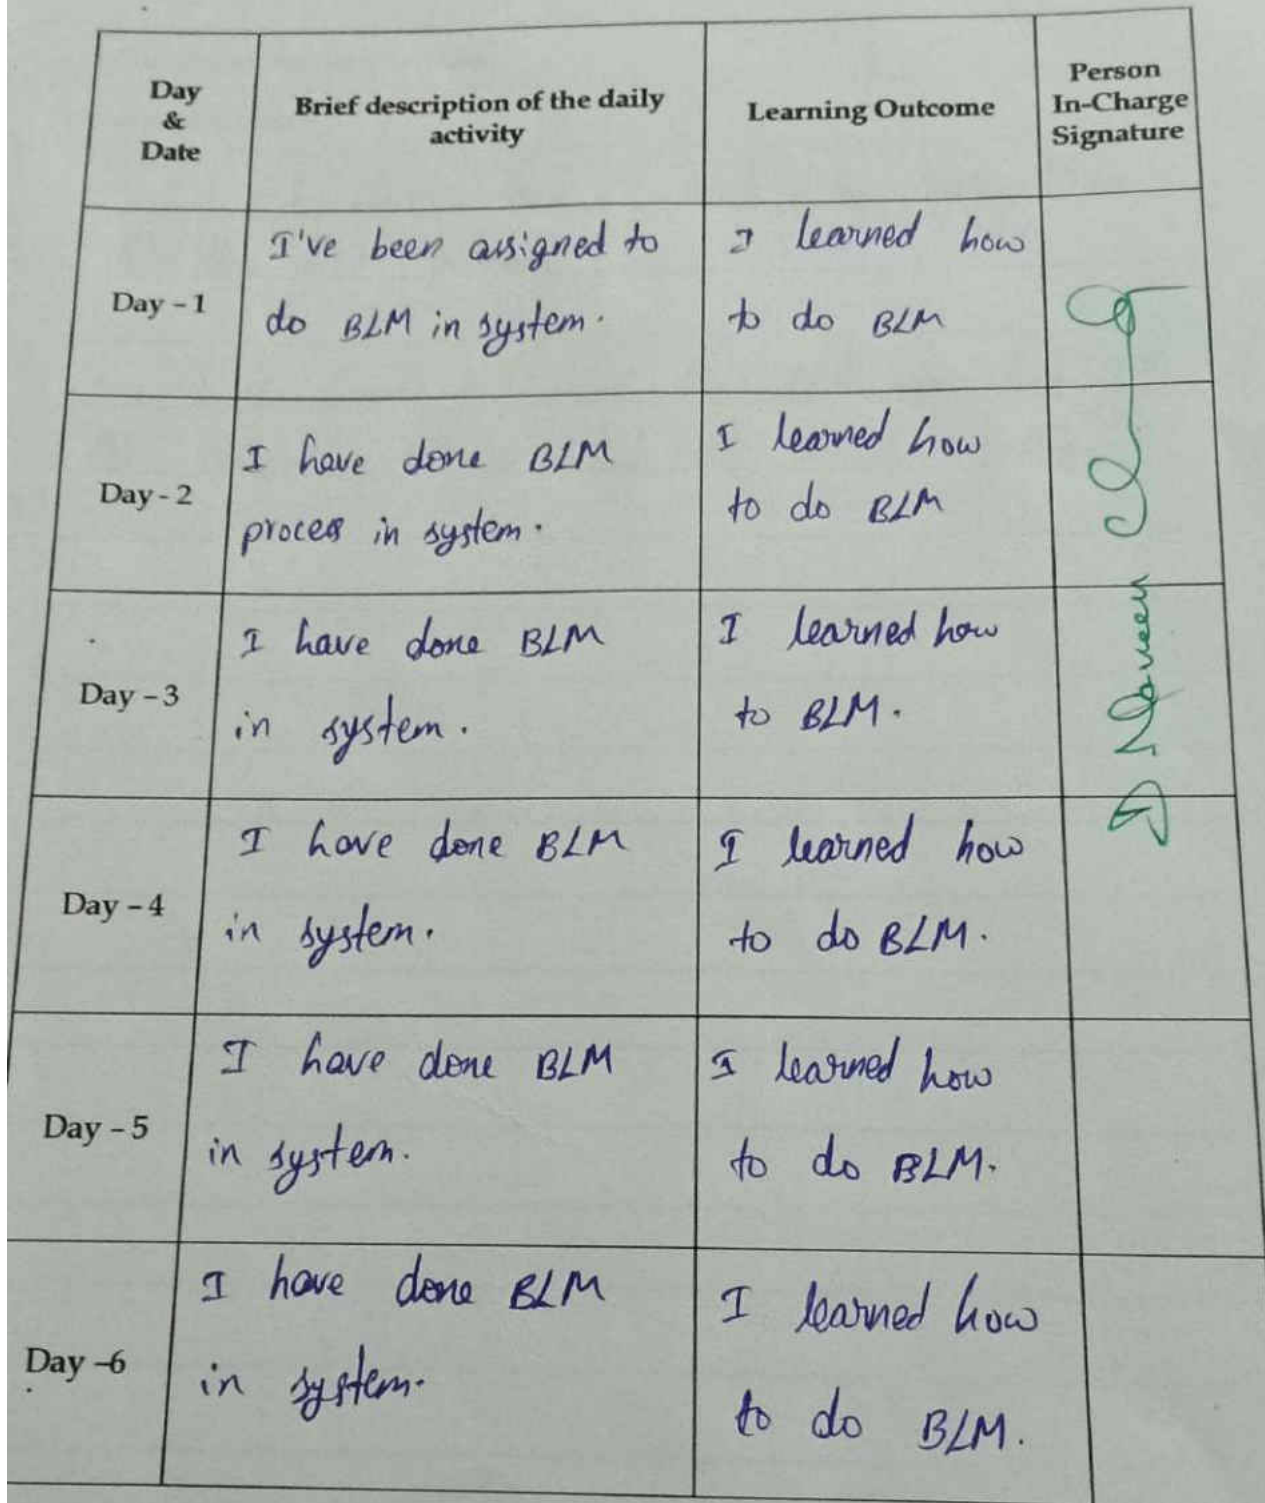 Day
&
Date
Brief description of the daily
activity
Learning Outcome
Person
In-Charge
Signature
Day - 1
I've been assigned to
do BLM in system.
I learned how
to do BLM
Day - 2
I have done BLM
process in system.
I learned how
to do BLM
Day - 3
I have done BLM
in system.
I learned how
to BLM.
Day - 4
I have done BLM
in system.
I learned how
to do BLM.
Day - 5
I have done BLM
in system.
I learned how
to do BLM.
Day -6
I have done BLM
in system.
I learned how
to do BLM.
Naveen